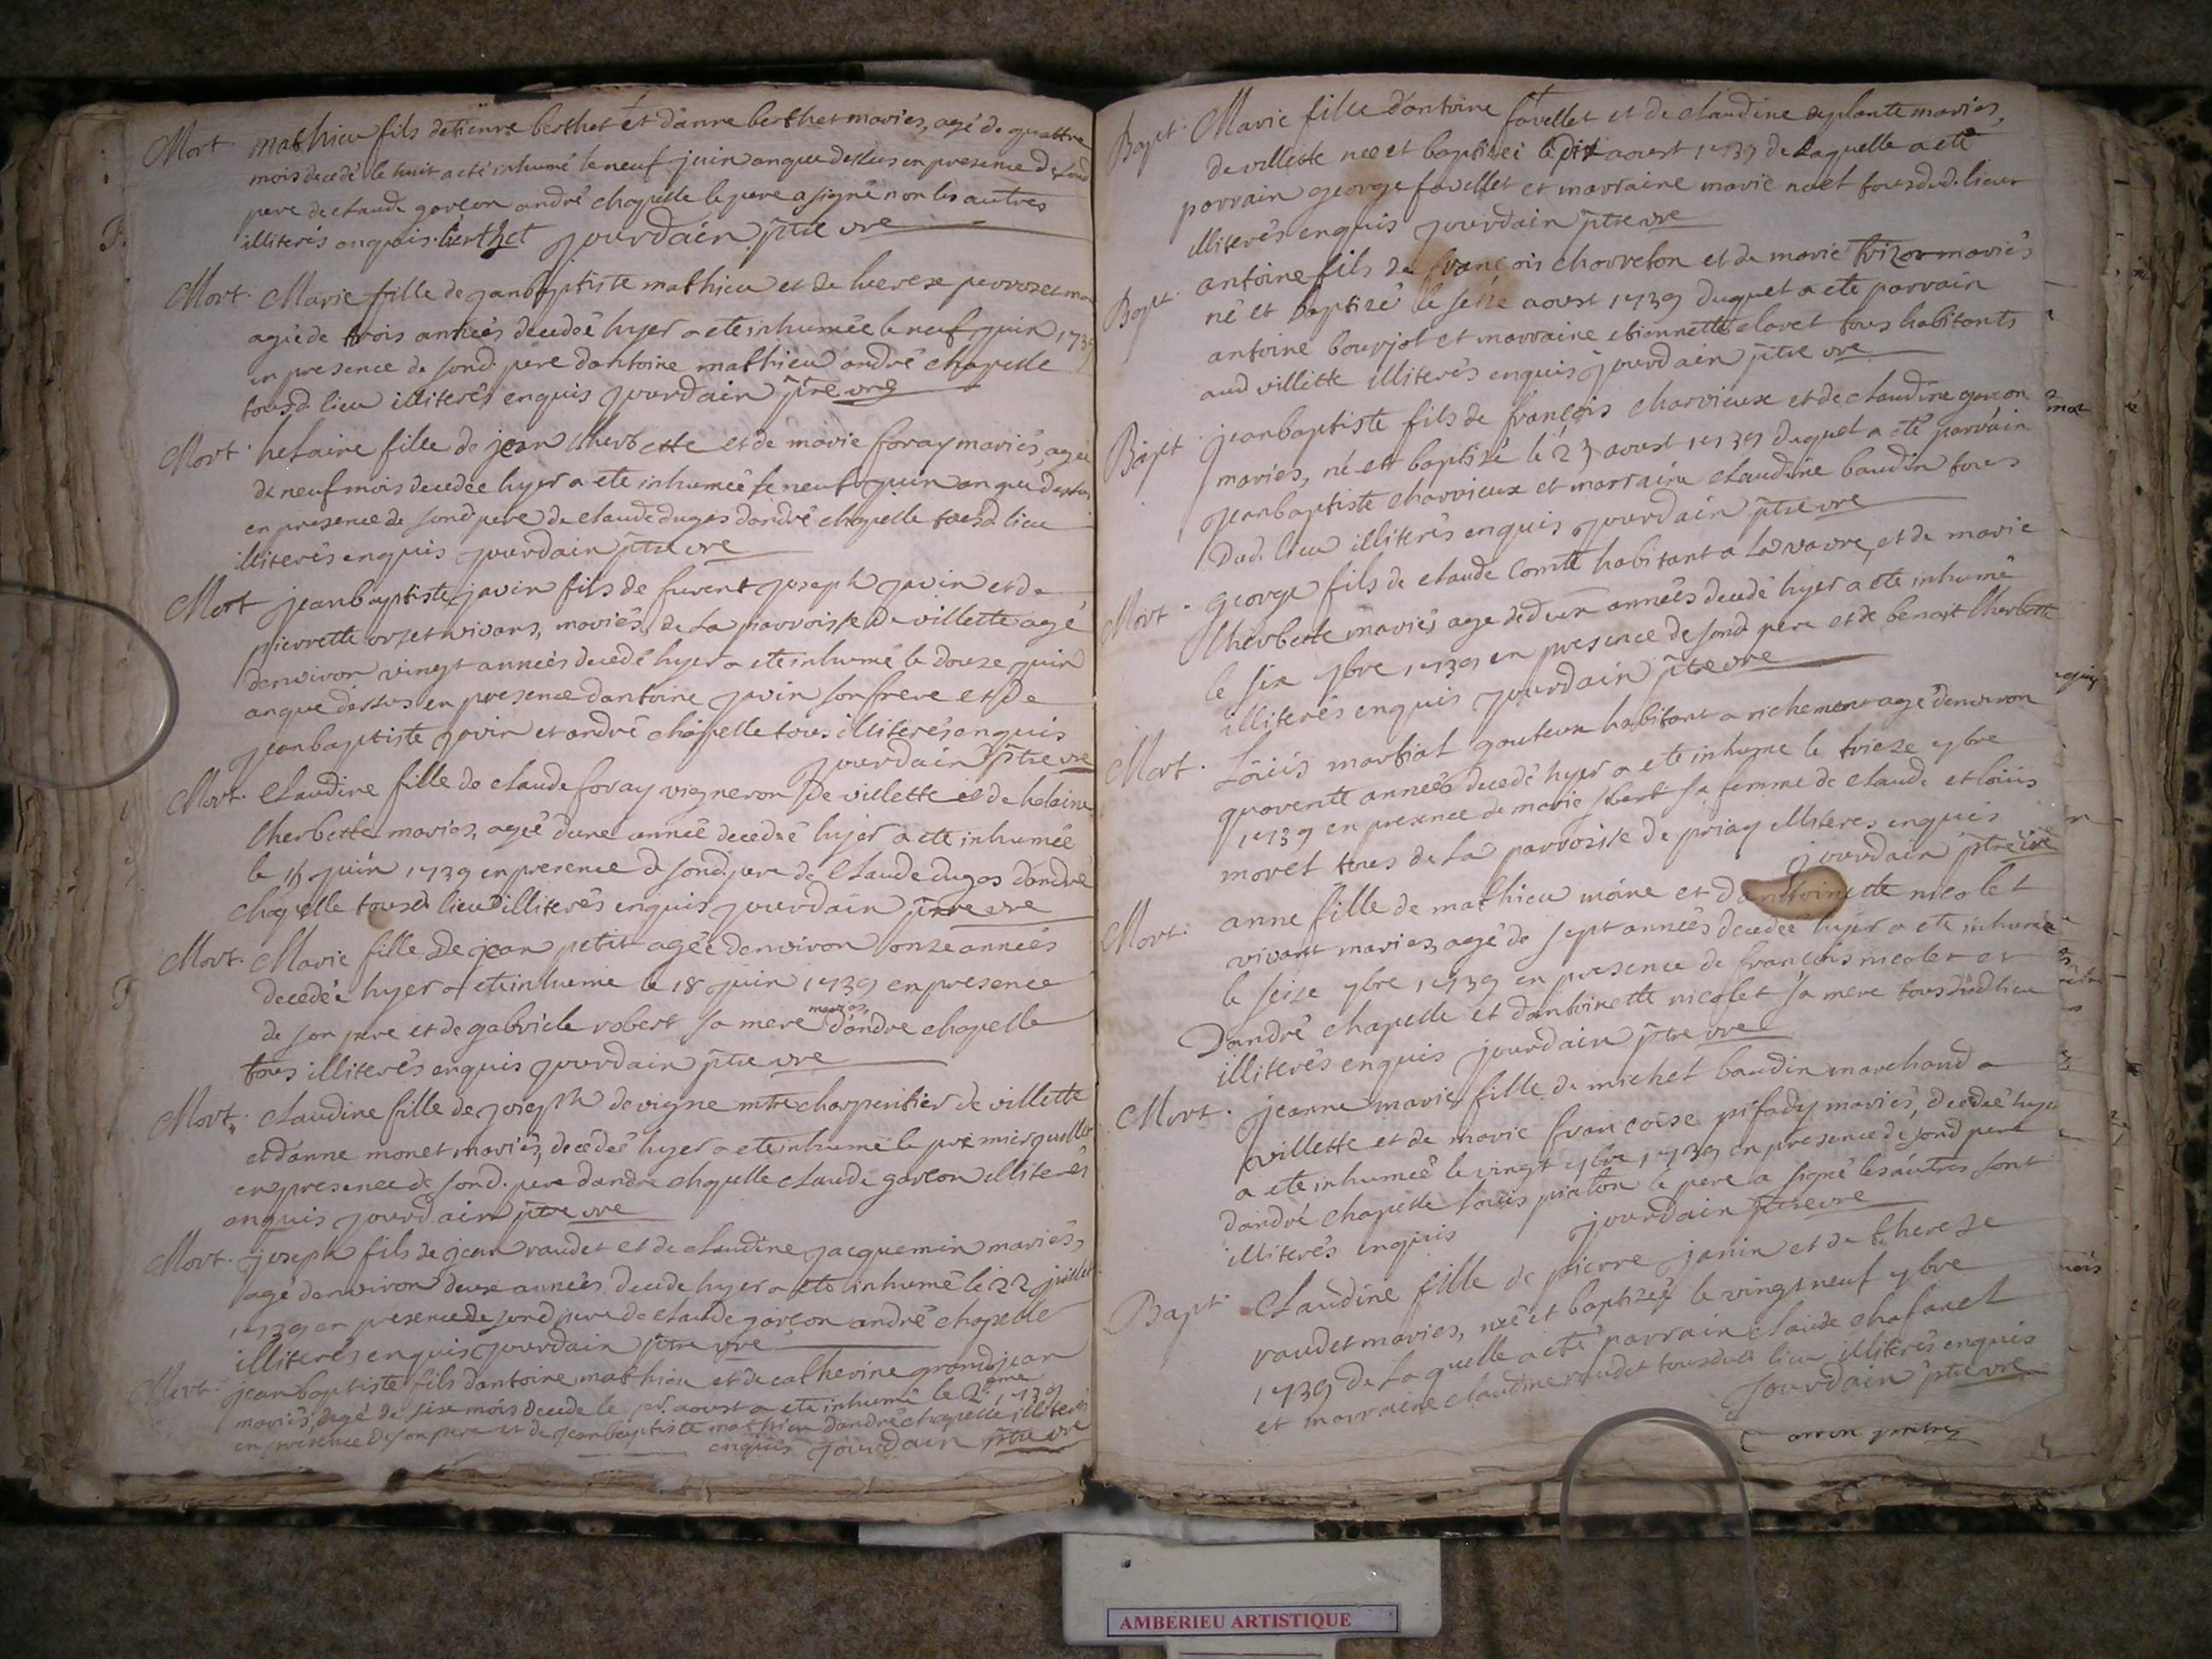 Mort. mathieu fils detienne berthet et danne berthet mariés, agé de quattre
mois decedé le huit a eté inhumé le neuf juin an que dessus en presence de sond
pere de claude garcon andré chapelle le pere a signé non les autres
illiterés enquis. berthet jourdain ptre vre
Mort. Marie fille de janbaptiste mathieu et de therese perrozet
agée de trois années decedeé hyer a ete inhumée le neuf juin 1739
en presence de sond. pere dantoine mathieu andré chapelle
tousd. lieu illiterés enquis jourdain ptre vre
Mort. helaine fille de jean lherbette et de marie foray mariés, agée
de neuf mois decedée hyer a ete inhumeé le neuf juin an que dessus
en presence de sond pere de claude dugas dandré chapelle tousd. lieu
illiterés enquis jourdain ptre vre
Mort jeanbaptiste javin fils de furent joseph javin et de
pierrette orset vivans, mariés, de la parroisse de villette agé
denviron vingt années decedé hyer a ete inhumé le douze juin
an que dessus en presence dantoine javin son frere et de
jeanbaptiste javin et andré chapelle tous illiterés enquis
jourdain ptre vre
Mort. claudine fille de claude foray vigneron de villette et de helaine
lherbette mariés, agée dune année decedeé hyer a ete inhumée
le 15 juin 1739 en presence de sond. pere de claude dugas dandré
chapelle tousd. lieu illiterés enquis jourdain ptre vre
Mort. Marie fille de jean petit agée denviron onze années
decedée hyer a ete inhumé le 18 juin 1739 en presence
de son pere et de gabriele robert sa mere mariés, dandre chapelle
tous illiterés enquis jourdain ptre vre
Mort. claudine fille de joseph devigne mtre charpentier de villette
et danne monet mariés, decedeé hyer a ete inhumé le premier
en presence de sond. pere dandre chapelle claude garcon illiterés
enquis jourdain ptre vre
Mort. joseph fils de jean raudet et de claudine jacquemin mariés,
agé denviron deux années decede hyer a ete inhumé le 22 juillet
1739 en presence de sond pere de claude garcon andré chapelle
illiterés enquis jourdain ptre vre
Mort. jeanbaptiste fils dantoine mathieu et de catherine grandjean
mariés, agé de six mois decede le pr. aoust a ete inhumé le 2eme 1739
en presence de son pere et de jeanbaptiste mathieu dandré chapelle illiterés
enquis jourdain ptre vre
Bapt. Marie fille dantoine favellet et de claudine deplante mariés,
de villette nee et baptiseé le dix aoust 1739 de laquelle a eté
parrain george favellet et marraine marie noel tousdud. lieu
illiterés enquis jourdain ptre vre
Bapt. antoine fils de francois charreton et de marie mariés
né et baptizé le seize aoust 1739 duquel a ete parrain
antoine bourjot et marraine etiennette claret tous habitants
aud villette illiterés enquis jourdain ptre vre
Bapt. jeanbaptiste fils de francois charvieux et de claudine garcon
mariés, né et baptizé le 23 aoust 1739 duquel a eté parrain
jeanbaptiste charvieux et marraine claudine baudin tous
dud. lieu illiterés enquis jourdain ptre vre
Mort. george fils de claude comte habitant a la vavre, et de marie
lherbette mariés age de deux années decedé hyer a ete inhumé
le six 7bre 1739 en presence de sond pere et de benoit lherbette
illiterés enquis jourdain ptre vre
Mort. Loüis martial gouteux habitant a richemont agé denviron
quarente années decedé hyer a ete inhume le treize 7bre
1739 en presence de marie sa femme de claude et loüis
moret tous de la parroisse de priay illiteres enquis
jourdain ptre vre
Mort. anne fille de mathieu moine et dantoinette nicolet
vivant mariés, agé de sept années decedeé hyer a ete inhumée
le seize 7bre 1739 en presence de francois nicolet et
dandré chapelle et dantoinette nicolet sa mere tous dud lieu
illiterés enquis jourdain ptre vre
Mort. jeanne marie fille de michel baudin marchand a
villette et de marie francoise pifady mariés, decedeé hyer
a ete inhumeé le vingt 7bre 1739 en presence de sond pere
dandré chapelle loüis piaton le pere a signé les autres sont
illiterés enquis jourdain ptre vre
Bapt. Claudine fille de pierre janin et de therese
raudet mariés, neé et baptizeé le vingt neuf 7bre
1739 de laquelle a eté parrain claude chafanel
et marraine claudine raudet tousdud. lieu illiterés enquis
jourdain ptre vre
AMBERIEU ARTISTIQUE